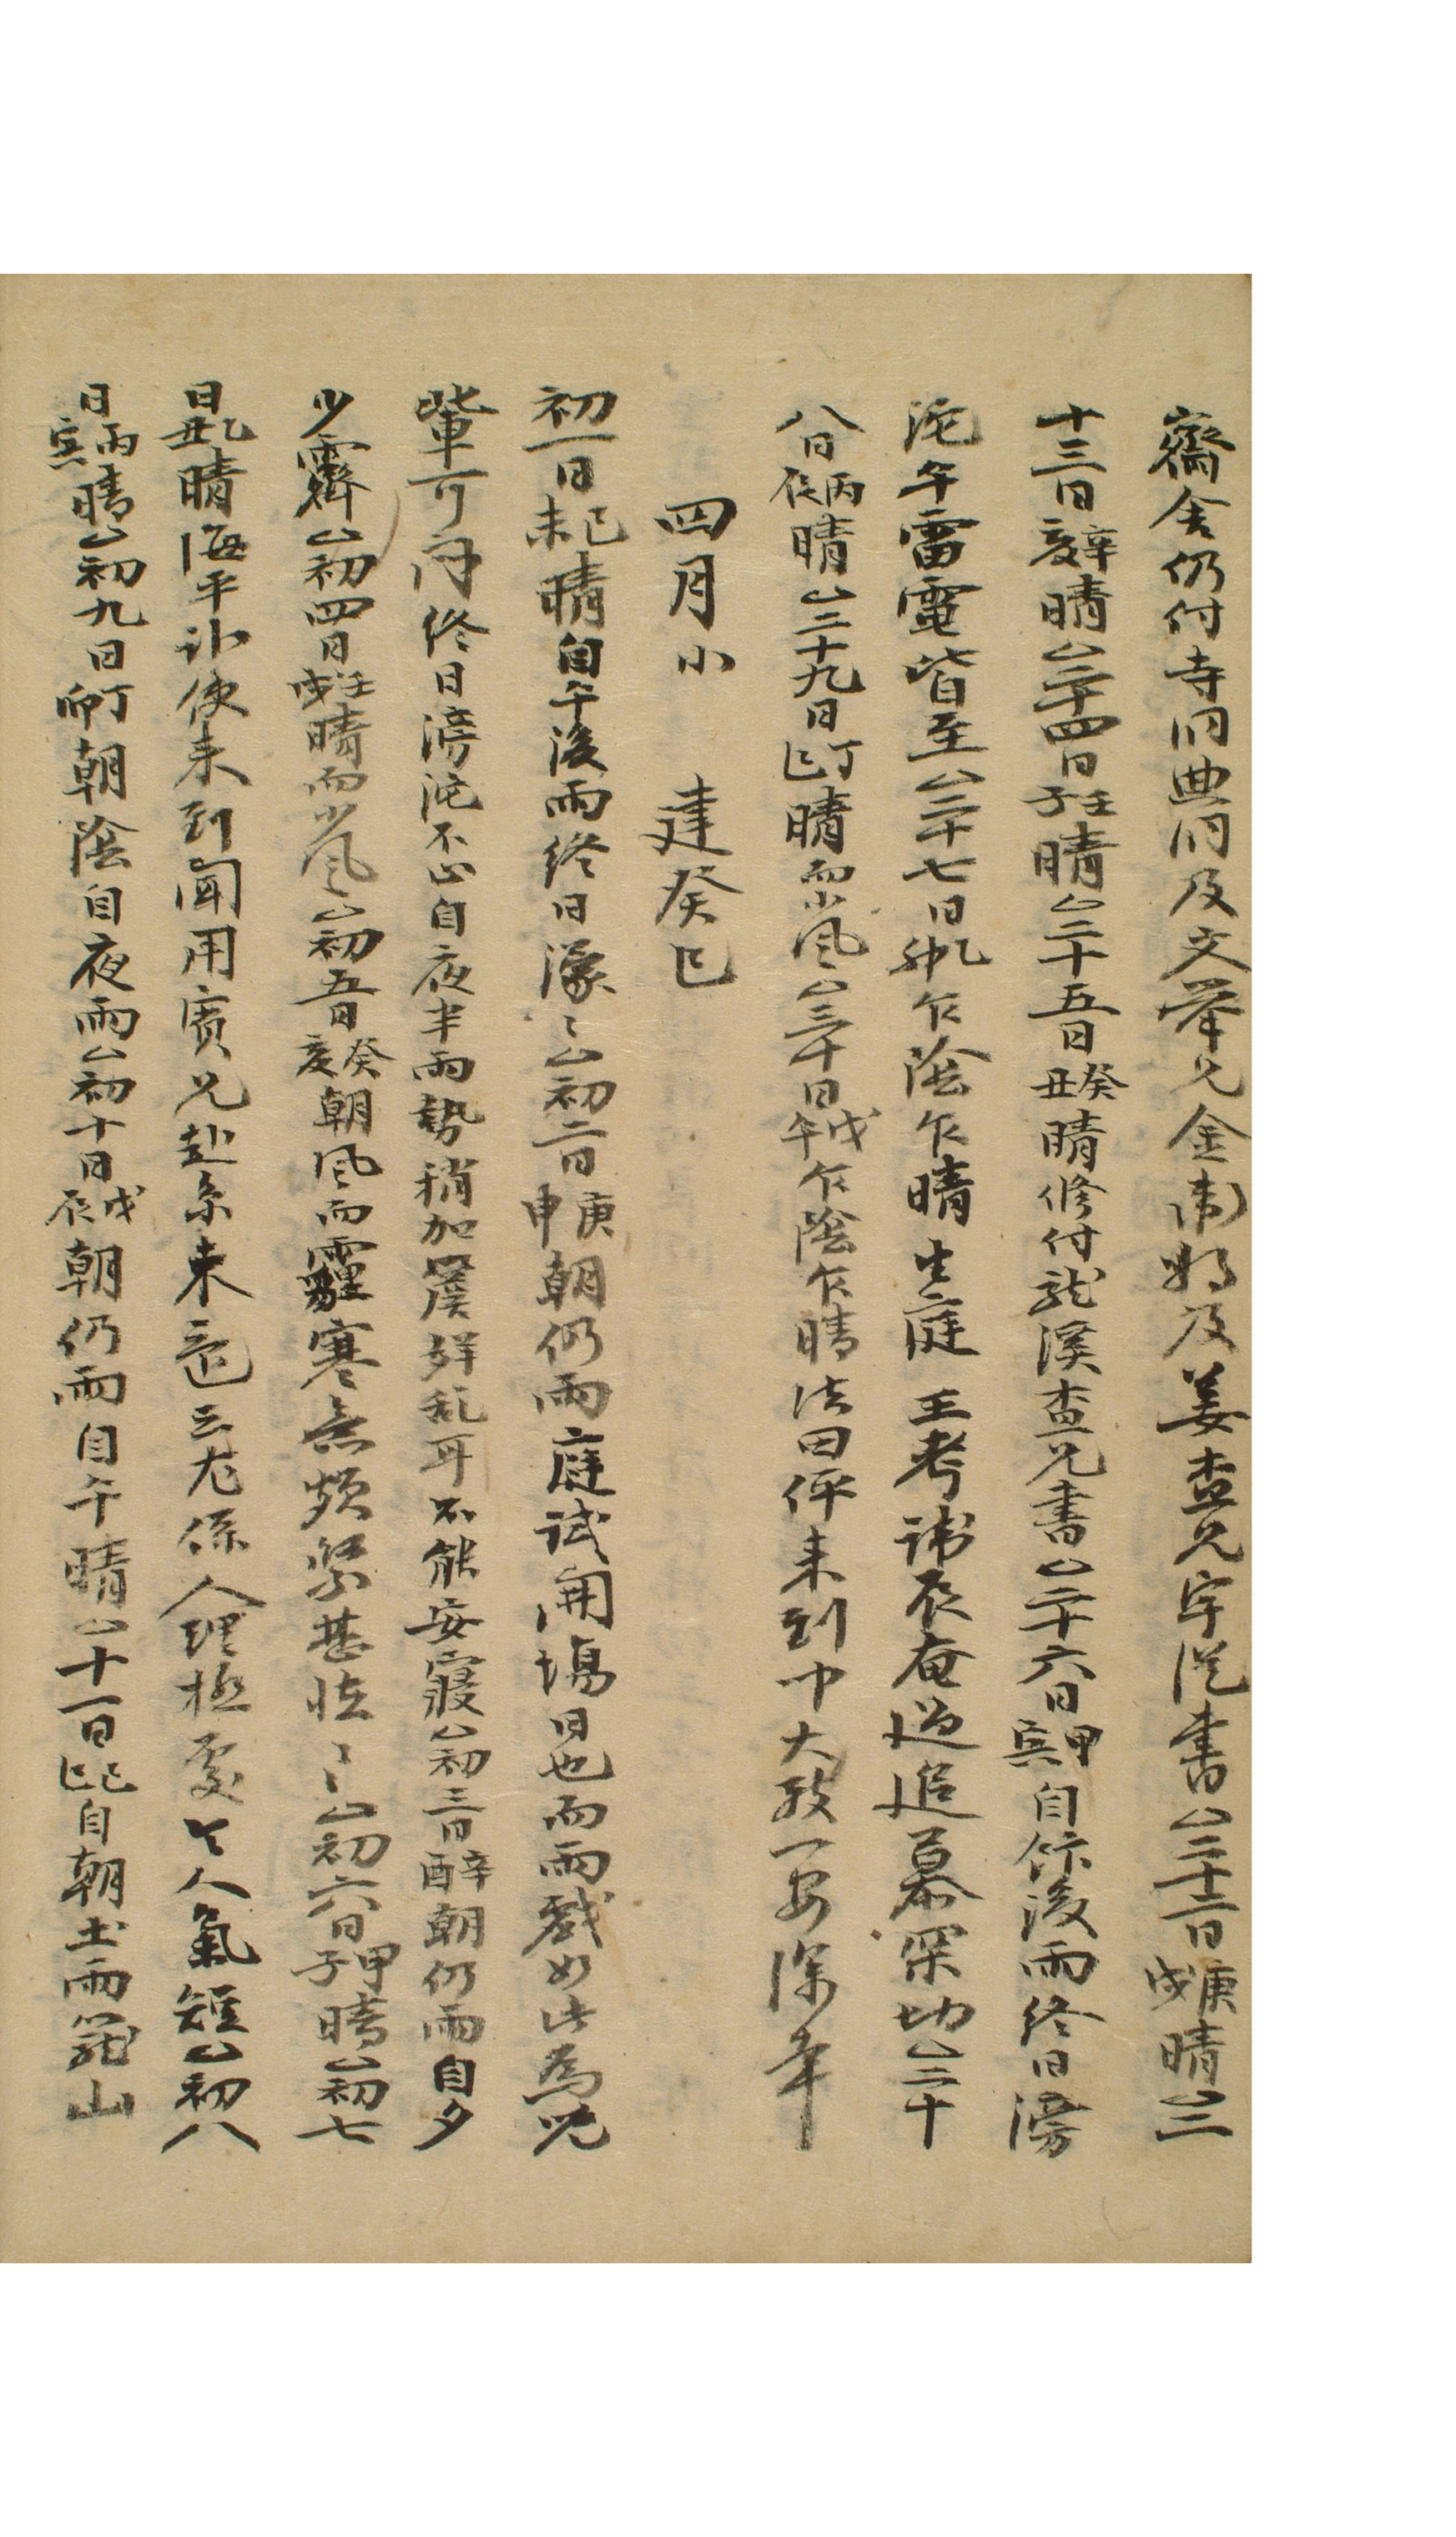 齋舍仍付寺洞典洞及文擧兄金南𡖖及姜査兄宇從書△二十二日庚戌晴△二
十三日辛亥晴△二十四日壬子晴△二十五日癸丑晴修付龍溪査兄書△二十六日甲寅自午後雨終日滂
沱午雷電皆至△二十七日乙卯乍陰乍晴生庭 王考諱辰奄過追慕采切△二十
八日丙辰晴△二十九日丁巳晴而小風△三十日戊午乍陰乍晴法田伻來到中大致一安深幸
四月小 建癸巳
初一日己未晴自午後雨終日濛〻△初二日庚申朝仍雨庭試開場日也而雨戲如此爲兒
輩可悶終日滂沱不止自夜半雨勢稍加騰鮮亂耳不能安寢△初三日辛酉朝仍雨自夕
少霽△初四日壬戌晴而小風△初五日癸亥朝風而霾寒無頗緊甚怪〻△初六日甲子晴△初七
日乙丑晴海平訃使來到聞用賓兄赴京未還云尤係人理極處令人氣短△初八
日丙寅晴△初九日丁卯朝陰自夜雨△初十日戊辰朝仍雨自午晴△十一日己巳自朝土雨籠山